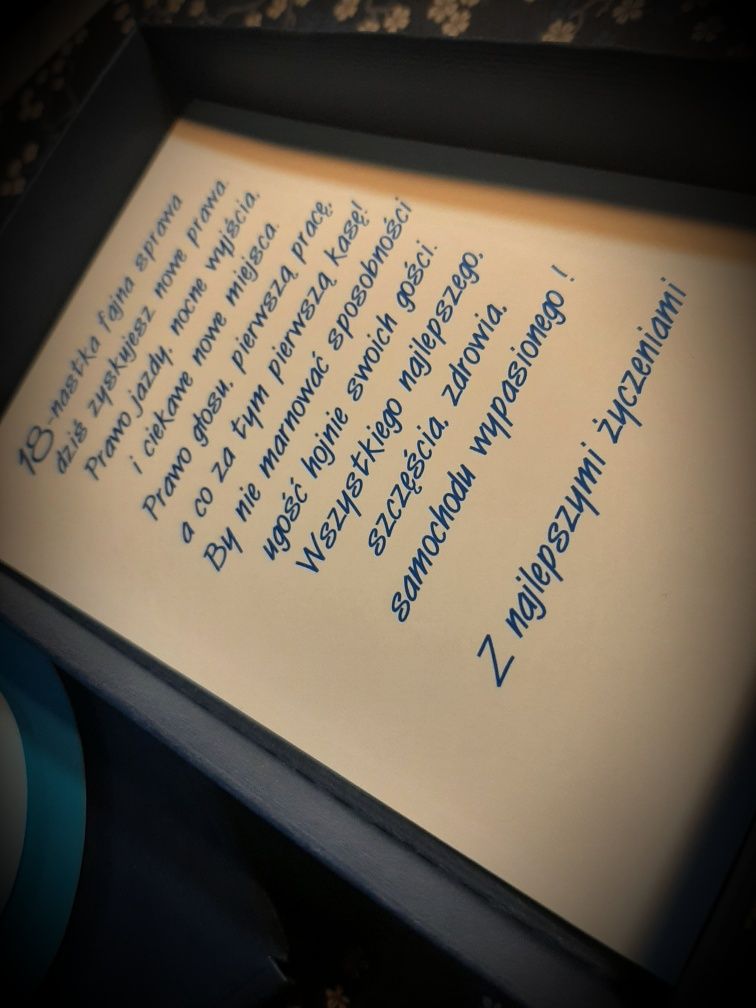 18-nastka fajna sprawa
dziś zyskujesz nowe prawa.
Prawo jazdy, nocne wyjścia,
i ciekawe nowe miejsca.
Prawo głosu, pierwszą pracę,
a co za tym pierwszą kasę!
By nie marnować sposobności
ugość hojnie swoich gości.
Wszystkiego najlepszego,
szczęścia, zdrowia,
samochodu wypasionego !
Z najlepszymi życzeniami